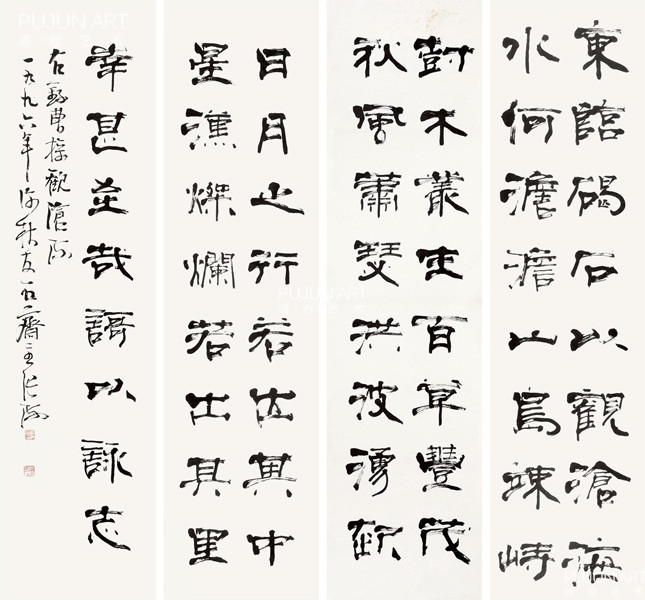 東臨碣石以觀滄海
水何澹澹山島竦峙
尌木叢生百草豐茂
秋風蕭瑟洪波湧起
日月之行若出其中
星漢燦爛若出其里
幸甚至哉謌以詠志
右録曹操觀滄海
一九九六年秋友石齋主張海
PUJUN ART
PUJUN ART
PUJUN ART